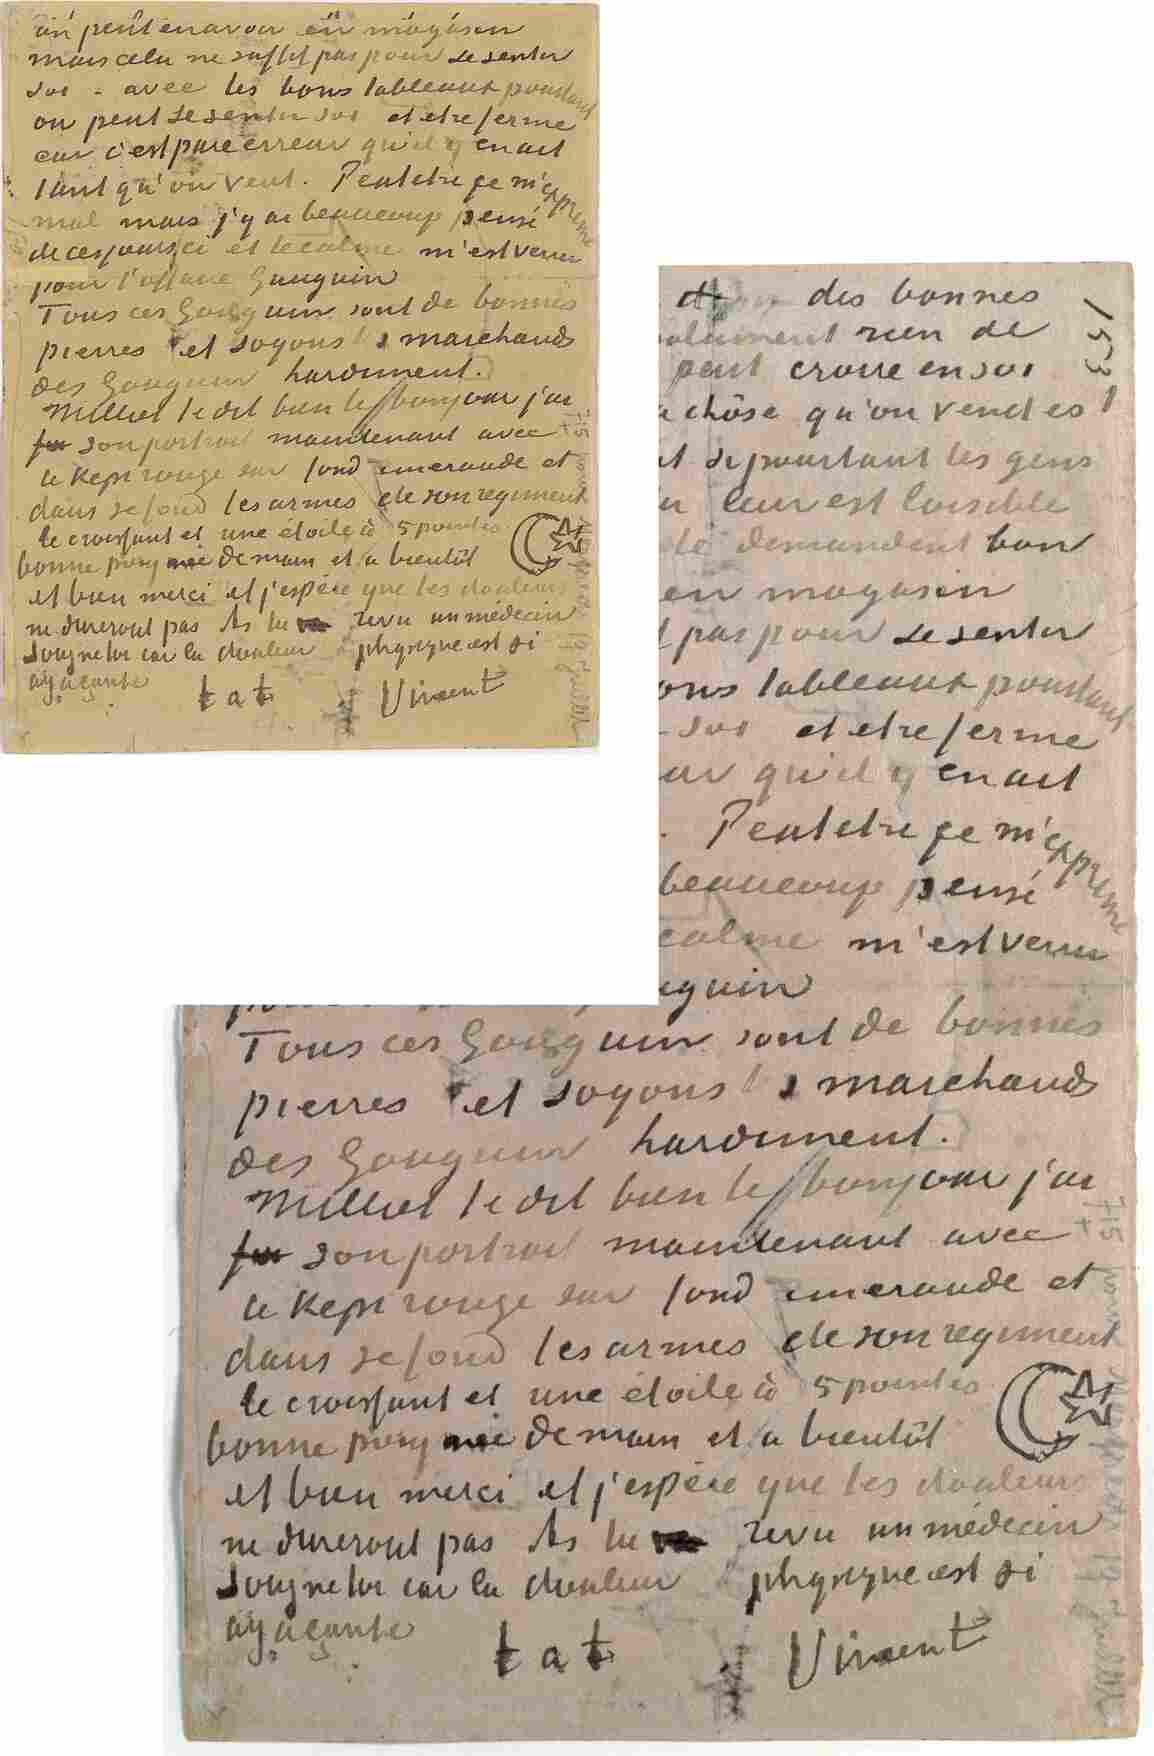 on peut en avoir en magasin
mais cela ne suffit pas pour se sentir
soi - avec les bons tableaux pourtant
on peut se sentir soi et etre ferme
car c'est pure erreur qu'il y en ait
tant qu'on veut. Peutetre je m'exprime
mal mais j'y ai beaucoup pensé
de ces jours ci et le calme m'est venu
pour l'affaire Gauguin
Tous ces Gauguin sont de bonnes
pierres et soyons les marchands
des Gauguin hardiment.
Milliet te dit bien le bonjour j'ai
son portrait maintenant avec
le Kepi rouge sur fond emeraude et
dans ce fond les armes de son regiment
le croissant et une étoile à 5 pointes
bonne poignée de main et a bientôt
et bien merci et j'espère que les douleurs
ne dureront pas As tu revu un médecin
Soigne toi car la douleur physique est si
agaçante
t a t Vincent
des bonnes
rien de
peut croire en soi
chôse qu'on vend es
se pourtant les gens
leur est loisible
demandent bon
en magasin
pas pour se sentir
tableaux pourtant
soi et etre ferme
qu'il y en ait
Peutetre je m'exprime
beaucoup pensé
calme m'est venu
153
Tous ces Gauguin sont de bonnes
pierres et soyons les marchands
des Gauguin hardiment.
Milliet te dit bien le bonjour j'ai
son portrait maintenant avec
le Kepi rouge sur fond emeraude et
dans ce fond les armes de son regiment
le croissant et une étoile à 5 pointes
bonne poignée de main et a bientôt
et bien merci et j'espère que les douleurs
ne dureront pas As tu revu un médecin
Soigne toi car la douleur physique est si
agaçante
t a t Vincent